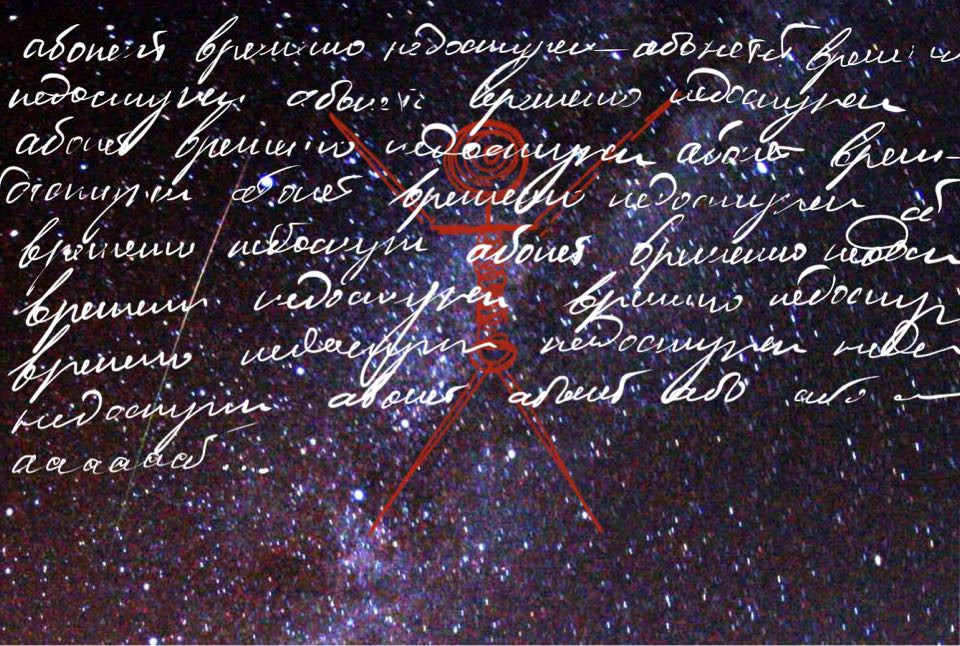 абонент временно недоступен — абонент временно
недоступен абонент временно недоступен
абонент временно недоступен абонент времен-
доступен абонент временно недоступен аб
временно недоступен абонент временно недос
временно недоступен временно недоступ
временно недоступен недоступен недос
недоступен абонент абонент або або
аааааб...